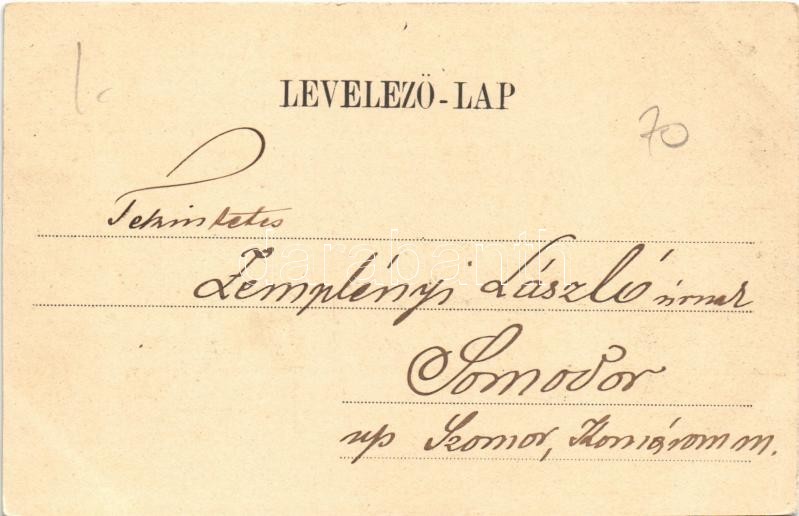 LEVELEZŐ-LAP
1.
70
Tekintetes
Zemplényi László úrnak
Somodor
up Szomor, Komárom m.
darabanth